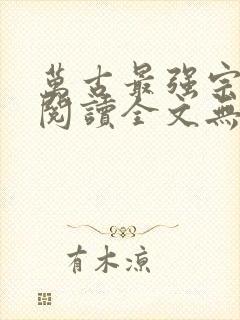 萬古最强宗
閱讀全文無
有木涼